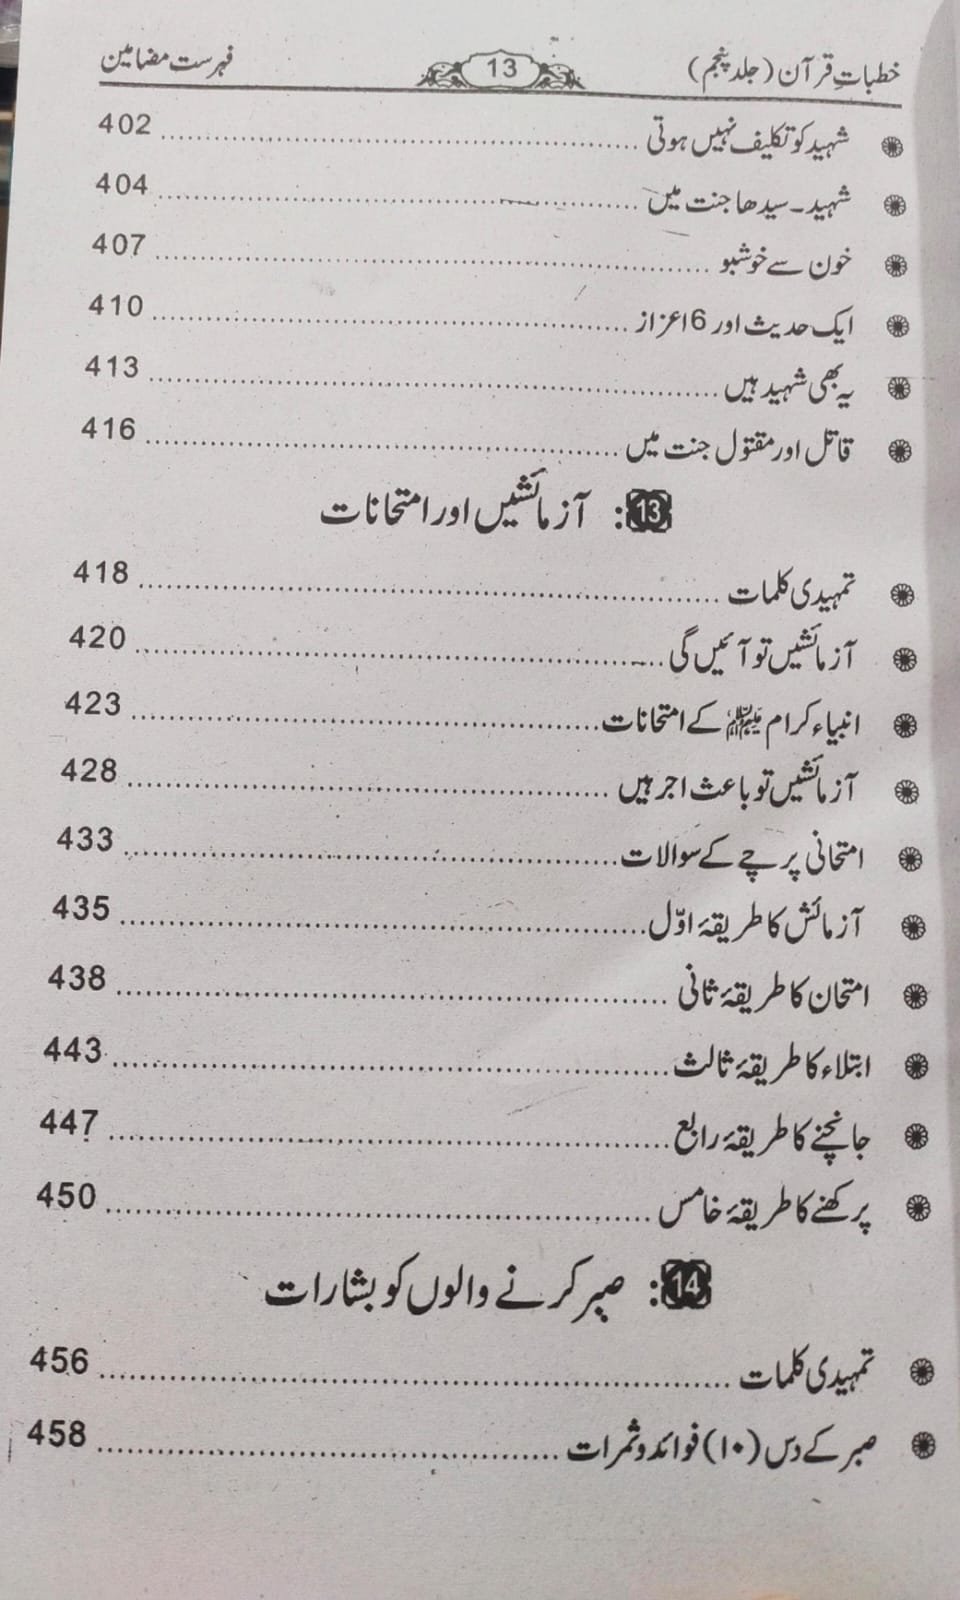 خطباتِ قرآن (جلد پنجم) 13 فہرست مضامین
شہید کو تکلیف نہیں ہوتی ........ 402
شہید۔ سیدھا جنت میں ........ 404
خون سے خوشبو ........ 407
ایک حدیث اور 6 اعزاز ........ 410
یہ بھی شہید ہیں ........ 413
قاتل اور مقتول جنت میں ........ 416
13: آزمائشیں اور امتحانات
تمہیدی کلمات ........ 418
آزمائشیں تو آئیں گی ........ 420
انبیاء کرام کے امتحانات ........ 423
آزمائشیں تو باعث اجر ہیں ........ 428
امتحانی پرچے کے سوالات ........ 433
آزمائش کا طریقۂ اوّل ........ 435
امتحان کا طریقۂ ثانی ........ 438
ابتلاء کا طریقۂ ثالث ........ 443
جانچنے کا طریقۂ رابع ........ 447
پرکھنے کا طریقۂ خامس ........ 450
14: صبر کرنے والوں کو بشارات
تمہیدی کلمات ........ 456
صبر کے دس (۱۰) فوائد و ثمرات ........ 458